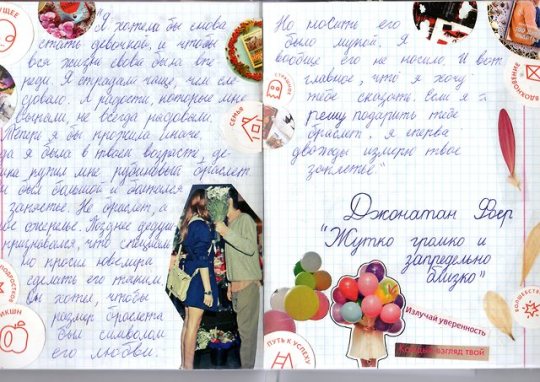 "Я хотела бы снова
стать девочкой, и чтобы
вся жизнь снова была впе-
реди. Я страдала чаще, чем сле-
довало. А радости, которые мне
выпали, не всегда радовали.
Теперь я бы прожила иначе.
да я была в твоем возрасте, де-
купил мне рубиновый браслет
был большой и болтался
запястье. Не браслет, а
ожерелье. Позднее дедушка
признавался, что специаль-
но просил ювелира
сделать его таким.
Он хотел, чтобы
размер браслета
был символом
его любви.
Но носить его
было мукой. Я
вообще его не носила. И вот
главное, что я хочу
тебе сказать. Если я
решу подарить тебе
браслет, я сперва
дважды измерю твое
запястье."
Джонатан Фоер
"Жутко громко и
запредельно
близко"
СЕМЬЯ
ВДОХНОВЕНИЕ
ПУТЬ К УСПЕХУ
Излучай уверенность
взгляд твой